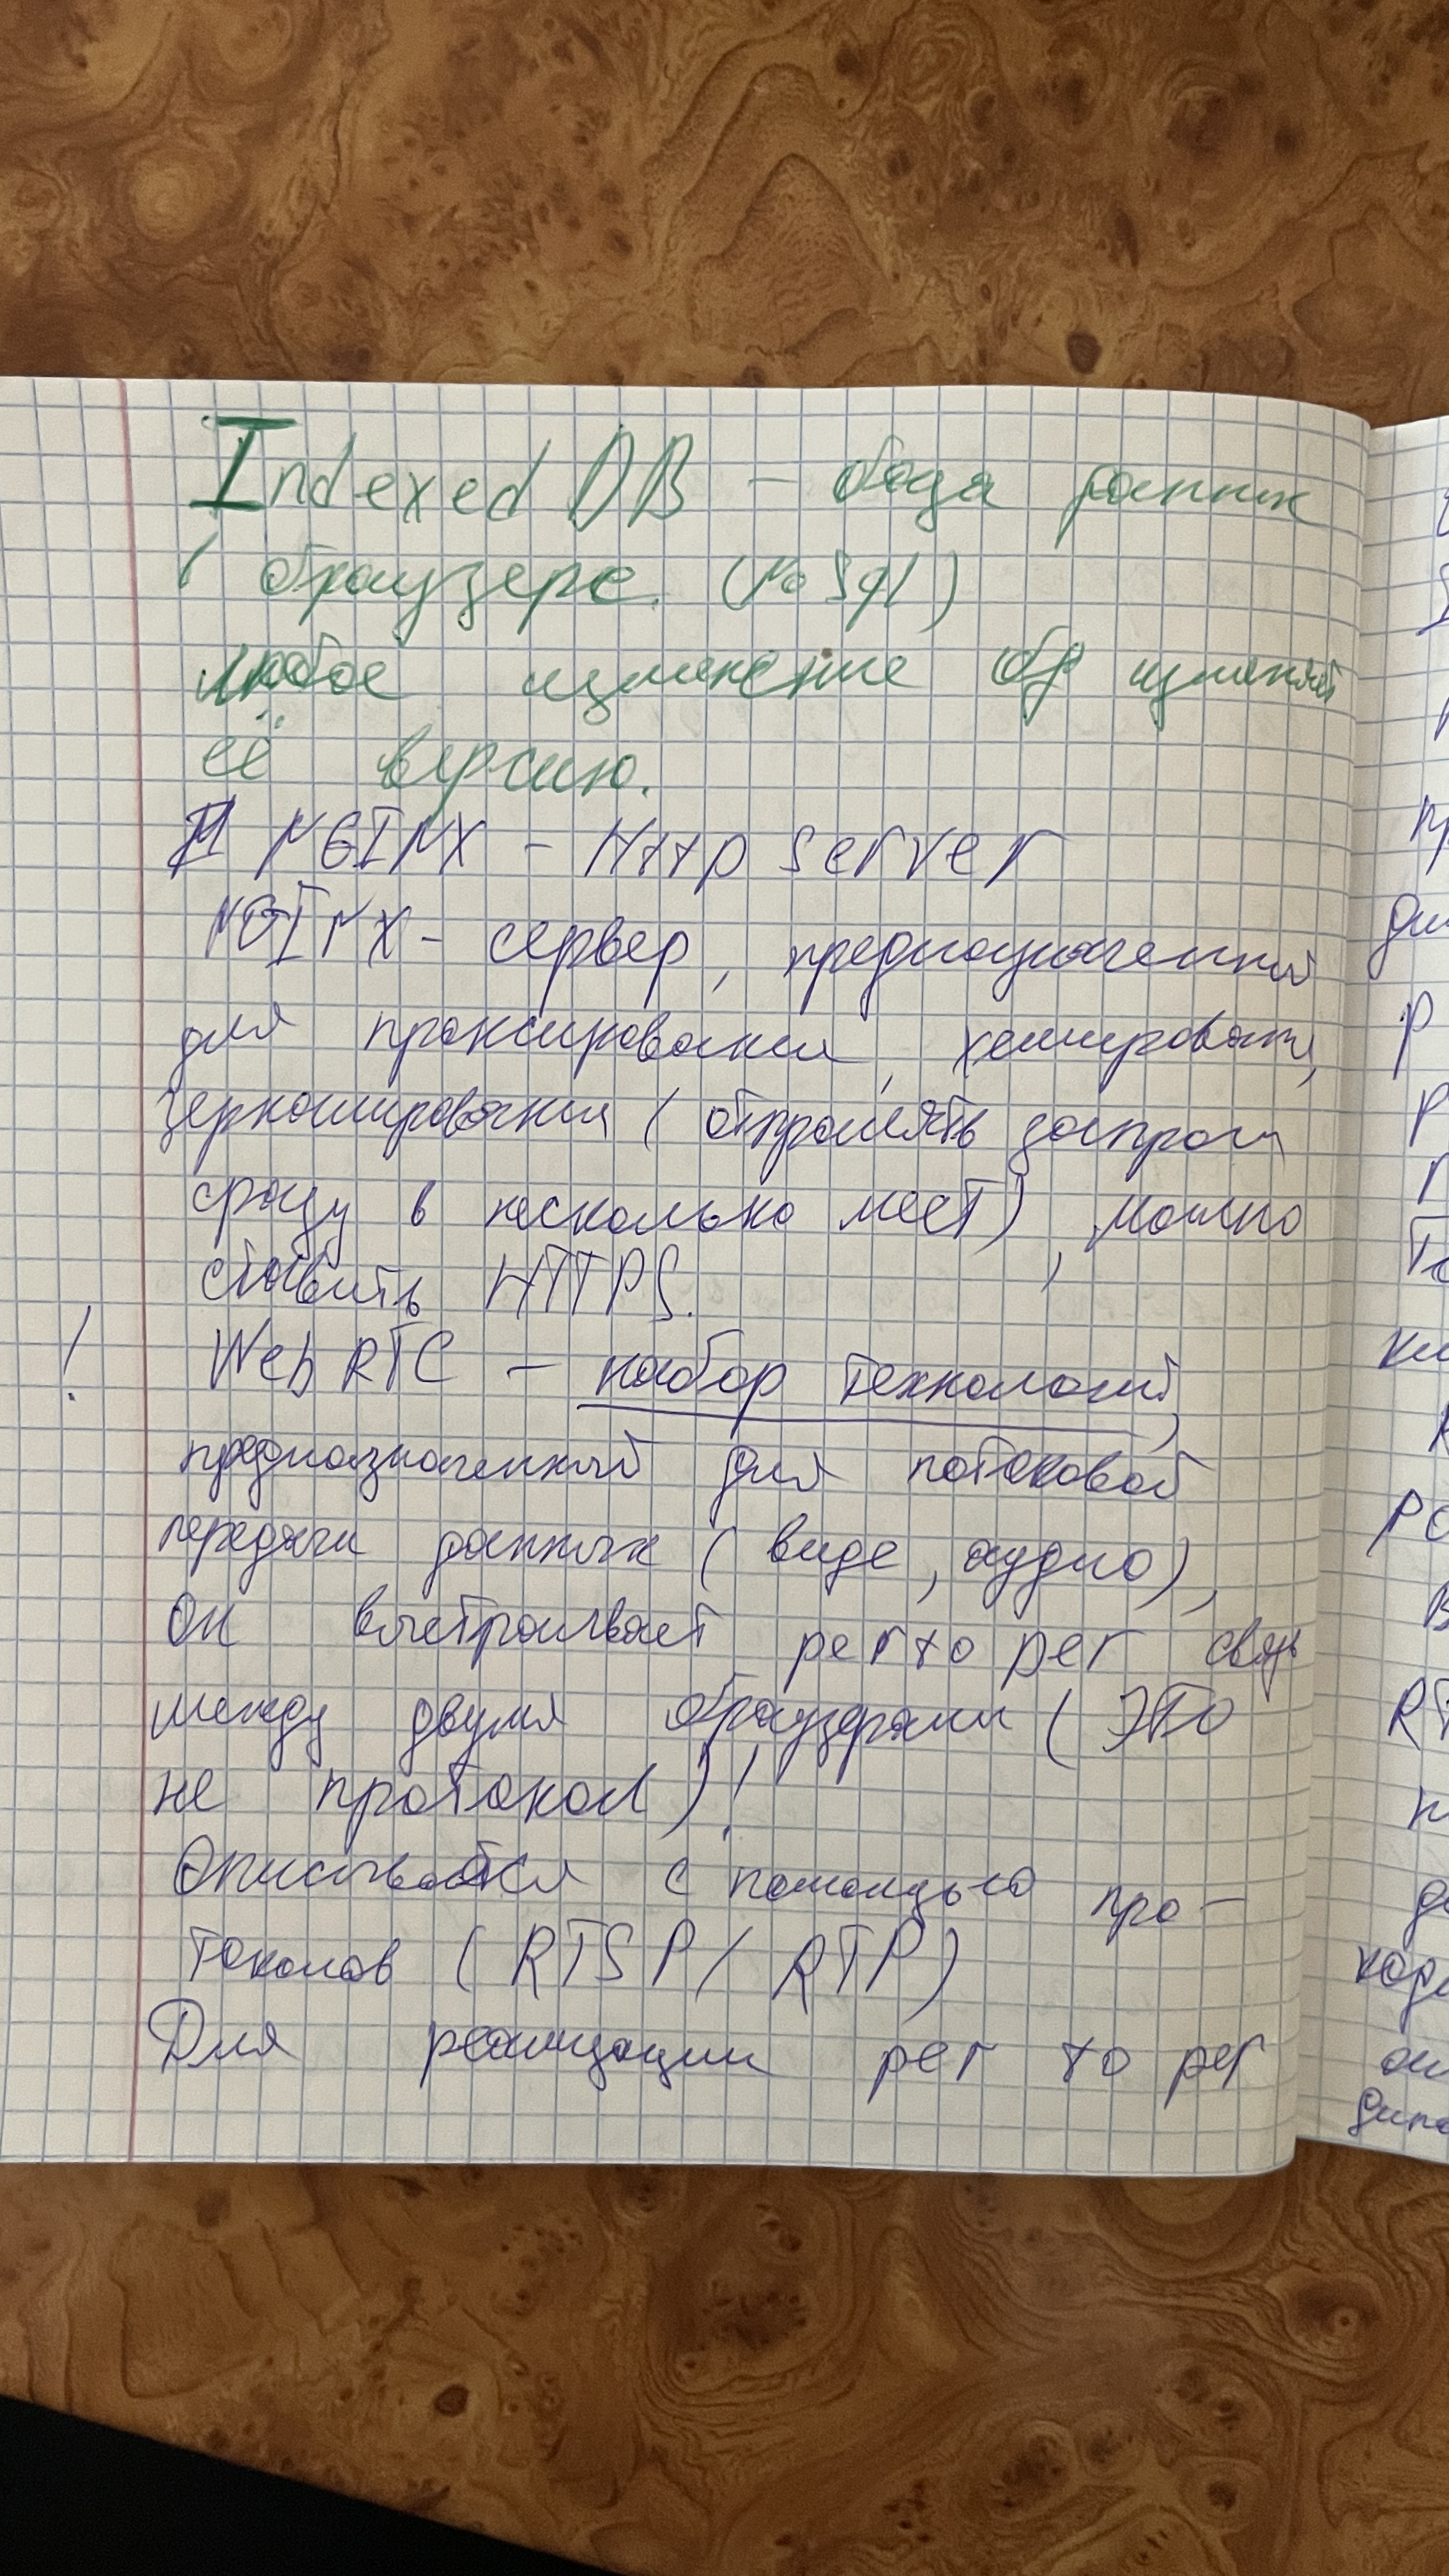 Indexed DB – база данных
в браузере. (NoSql)
любое изменение бд изменяет
её версию.
NGINX - Http server
NGINX - сервер, предназначенный
для проксирования, хеширования,
зеркалирования (отправлять запросы
сразу в несколько мест), можно
ставить HTTPS.
! Web RTC – набор технологий,
предназначенный для потоковой
передачи данных (виде, аудио),
он выстраивает per to per связь
между двумя браузерами (это
не протокол)!
Описывается с помощью про-
токолов (RTSP/RTP)
Для реализации per to per